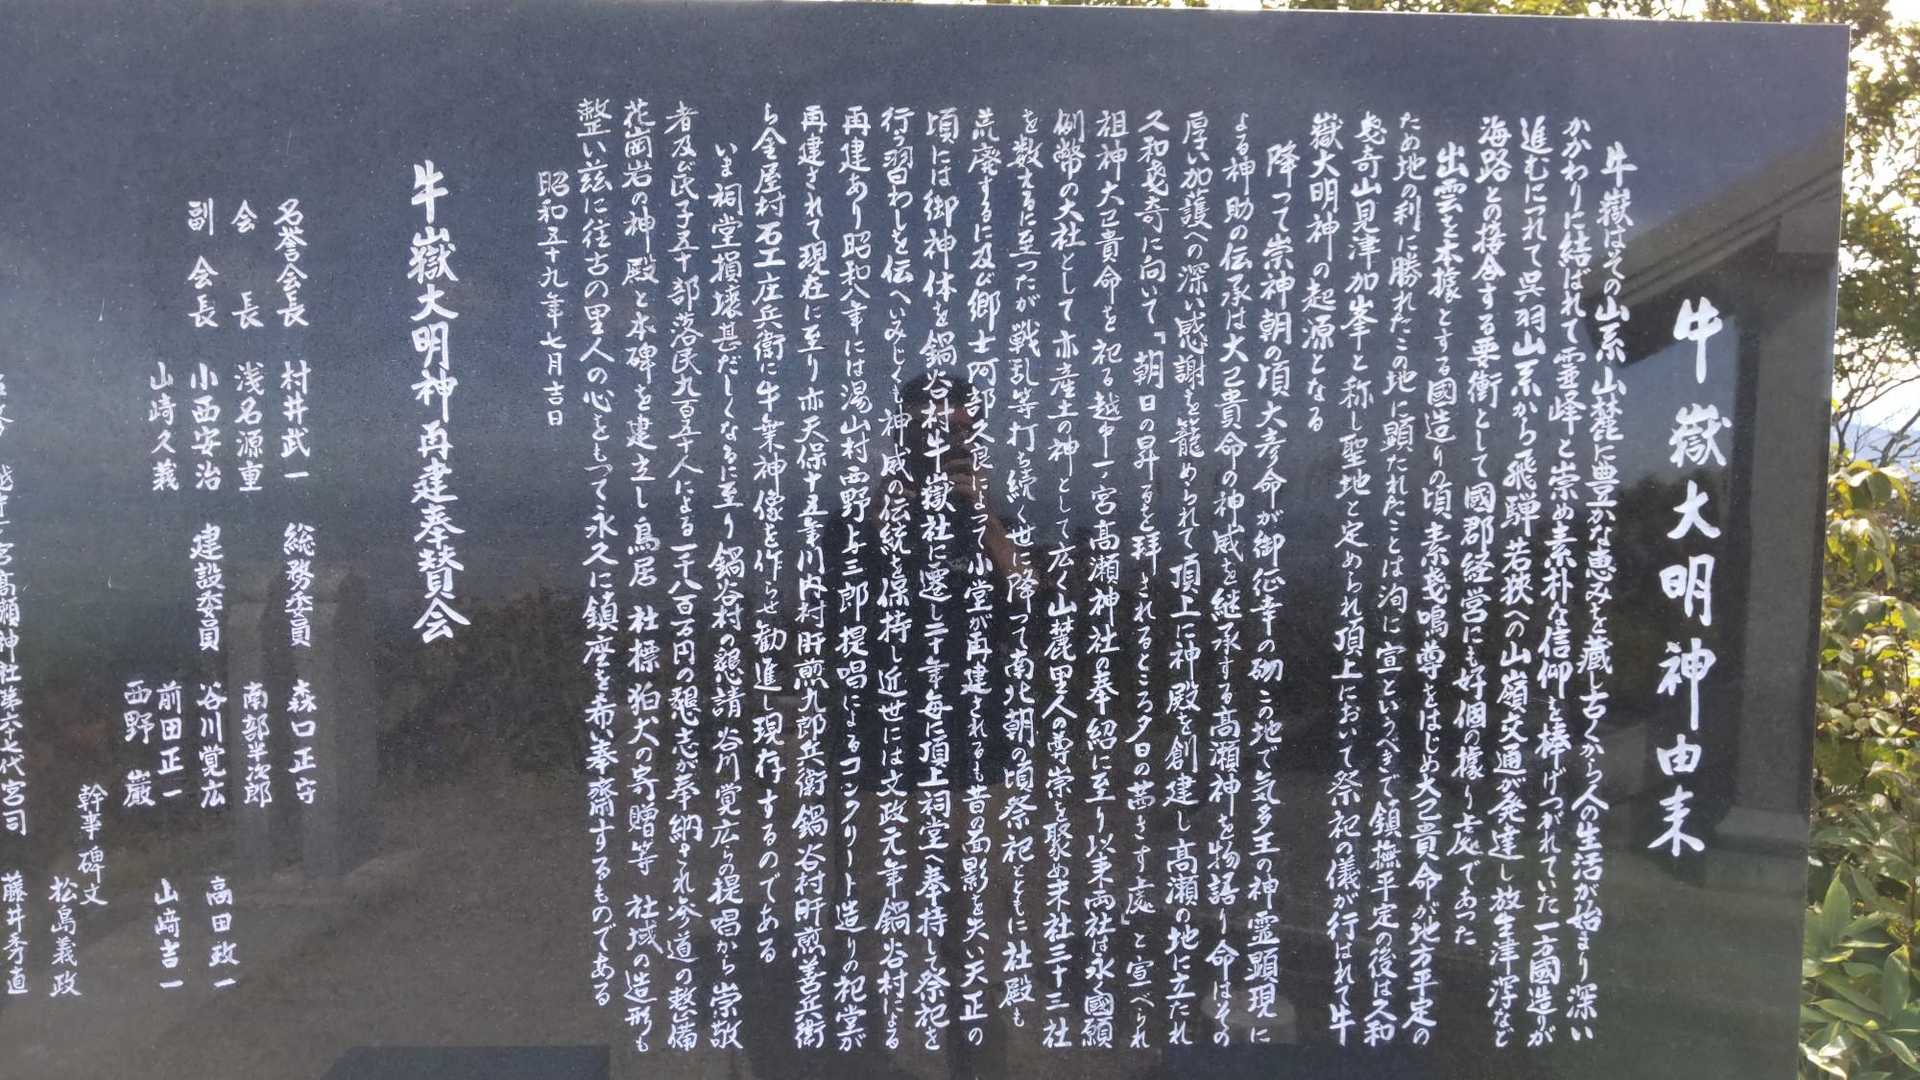 牛嶽大明神由来
牛嶽はその山系山麓に豊かな恵みを蔵し古くから人の生活が始まり深い
かかわりに結ばれて霊峰と崇め素朴な信仰を捧げつがれていた一方國造りが
進むにつれて呉羽山系から飛騨若狭への山嶺交通が発達し放生津浮など
海路との接合する要衝として國郡経営にも好個の據り処であった
出雲を本據とする國造りの頃素戔鳴尊をはじめ大己貴命が地方平定の
ため地の利に勝れたこの地に顕たれたことは洵に宣というべきで鎮撫平定の後は久和
崽奇山見津加峯と称し聖地と定められ頂上において祭祀の儀が行はれて牛
嶽大明神の起源となる
降って崇神朝の頃大彦命が御征幸の砌この地で気多王の神霊顕現に
よる神助の伝承は大己貴命の神威を継承する高瀬神を物語り命はその
厚い加護への深い感謝を籠められて頂上に神殿を創建し高瀬の地に立たれ
久和崽奇に向いて『朝日の昇るを拝されるところ夕日の茜さす処』と宣べられ
祖神大己貴命を祀る越中一宮高瀬神社の奉紹に至り以来両社は永く國願
例幣の大社として亦産土の神として広く山麓里人の尊崇を聚め末社三十三社
を数えるに至ったが戦乱等打ち続く世に降って南北朝の頃祭祀とともに社殿も
荒廃するに及び郷士阿部久良によって小堂が再建されるも昔の面影を失い天正の
頃には御神体を鍋谷村牛嶽社に遷し二十年毎に頂上祠堂へ奉持して祭祀を
行う習わしを伝へいみじくも神威の伝統を保持し近世には文政元年鍋谷村による
再建あり昭和八年には湯山村西野与三郎提唱によるコンクリート造りの祀堂が
再建されて現在に至り亦天保十五年川内村肝煎九郎兵衛鍋谷村肝煎善兵衛
ら金屋村石工庄兵衛に牛乗神像を作らせ勧進し現存するのである
いま祠堂損壊甚だしくなるに至り鍋谷村の懇請谷川覚広らの提唱から崇敬
者及び氏子五十部落民九百五十人による一千八百万円の懇志が奉納され参道の整備
花崗岩の神殿と本碑を建立し鳥居 社標狛犬の寄贈等 社域の造形も
整い茲に往古の里人の心をもって永久に鎮座を希い奉齋するものである
昭和五十九年七月吉日
牛嶽大明神再建奉賛会
名誉会長 村井武一 総務委員 森口正守
会長 浅名源重 南部半次郎
副会長 小西安治 建設委員 谷川覚広 高田政一
山崎久義 前田正一 山崎吉一
西野 巌
幹事碑文 松島義政
宮高瀬神社第六十七代宮司 藤井秀直